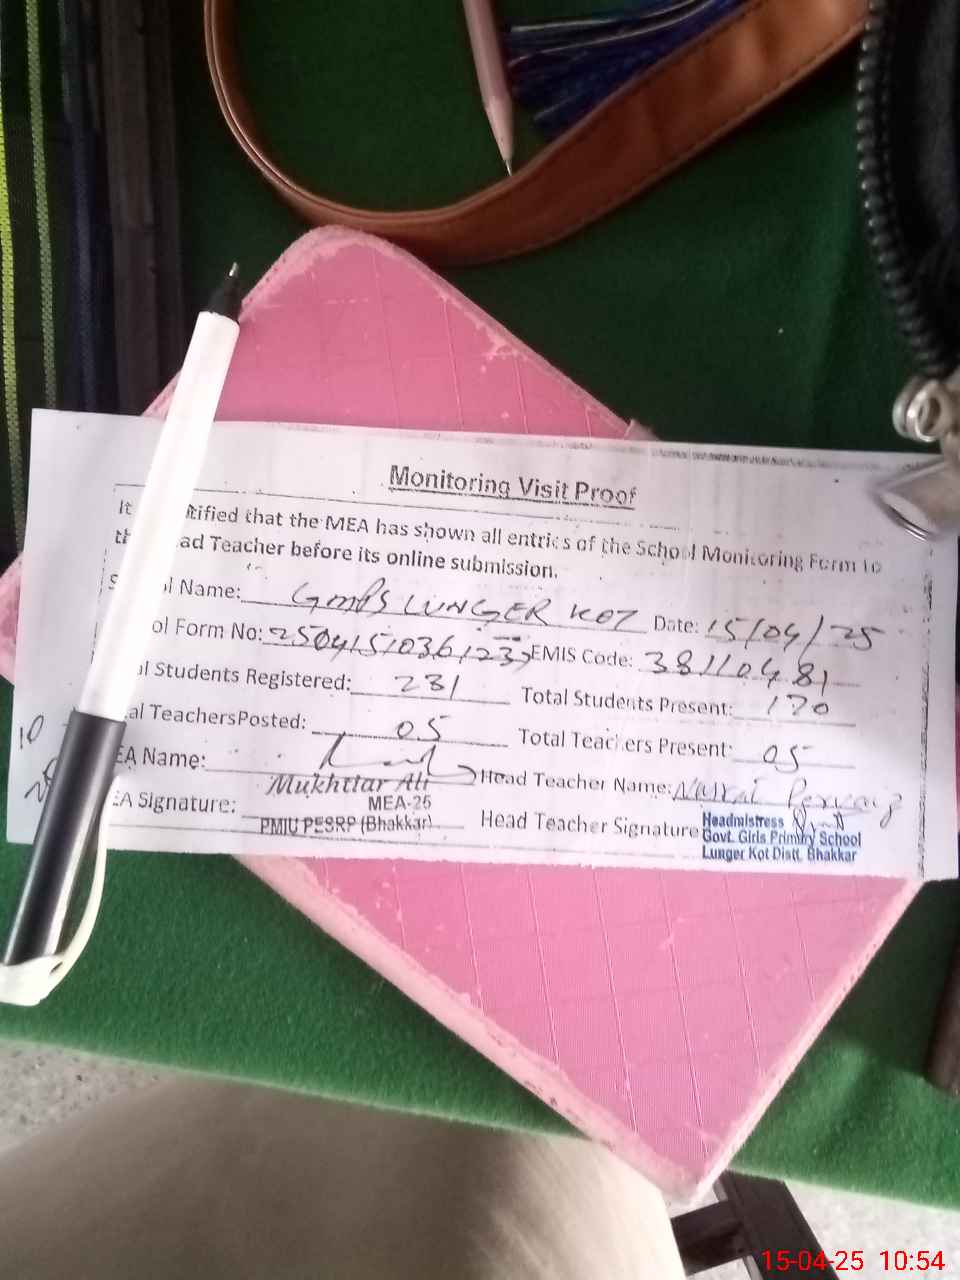 Monitoring Visit Proof
It tified that the MEA has shown all entries of the School Monitoring Form to
th ad Teacher before its online submission.
S l Name: GMPS LUNGER KOT Date: 15/04/25
ol Form No: 25041510361233 EMIS Code: 38110481
al Students Registered: 231 Total Students Present: 170
al TeachersPosted: 05 Total Teachers Present: 05
10
EA Name: Head Teacher Name: Pervaiz
Mukhtiar Ali
EA Signature: MEA-25 Head Teacher Signature
PMIU PESRP (Bhakkar)
Headmistress
Govt. Girls Primary School
Lunger Kot Distt. Bhakkar
15-04-25 10:54